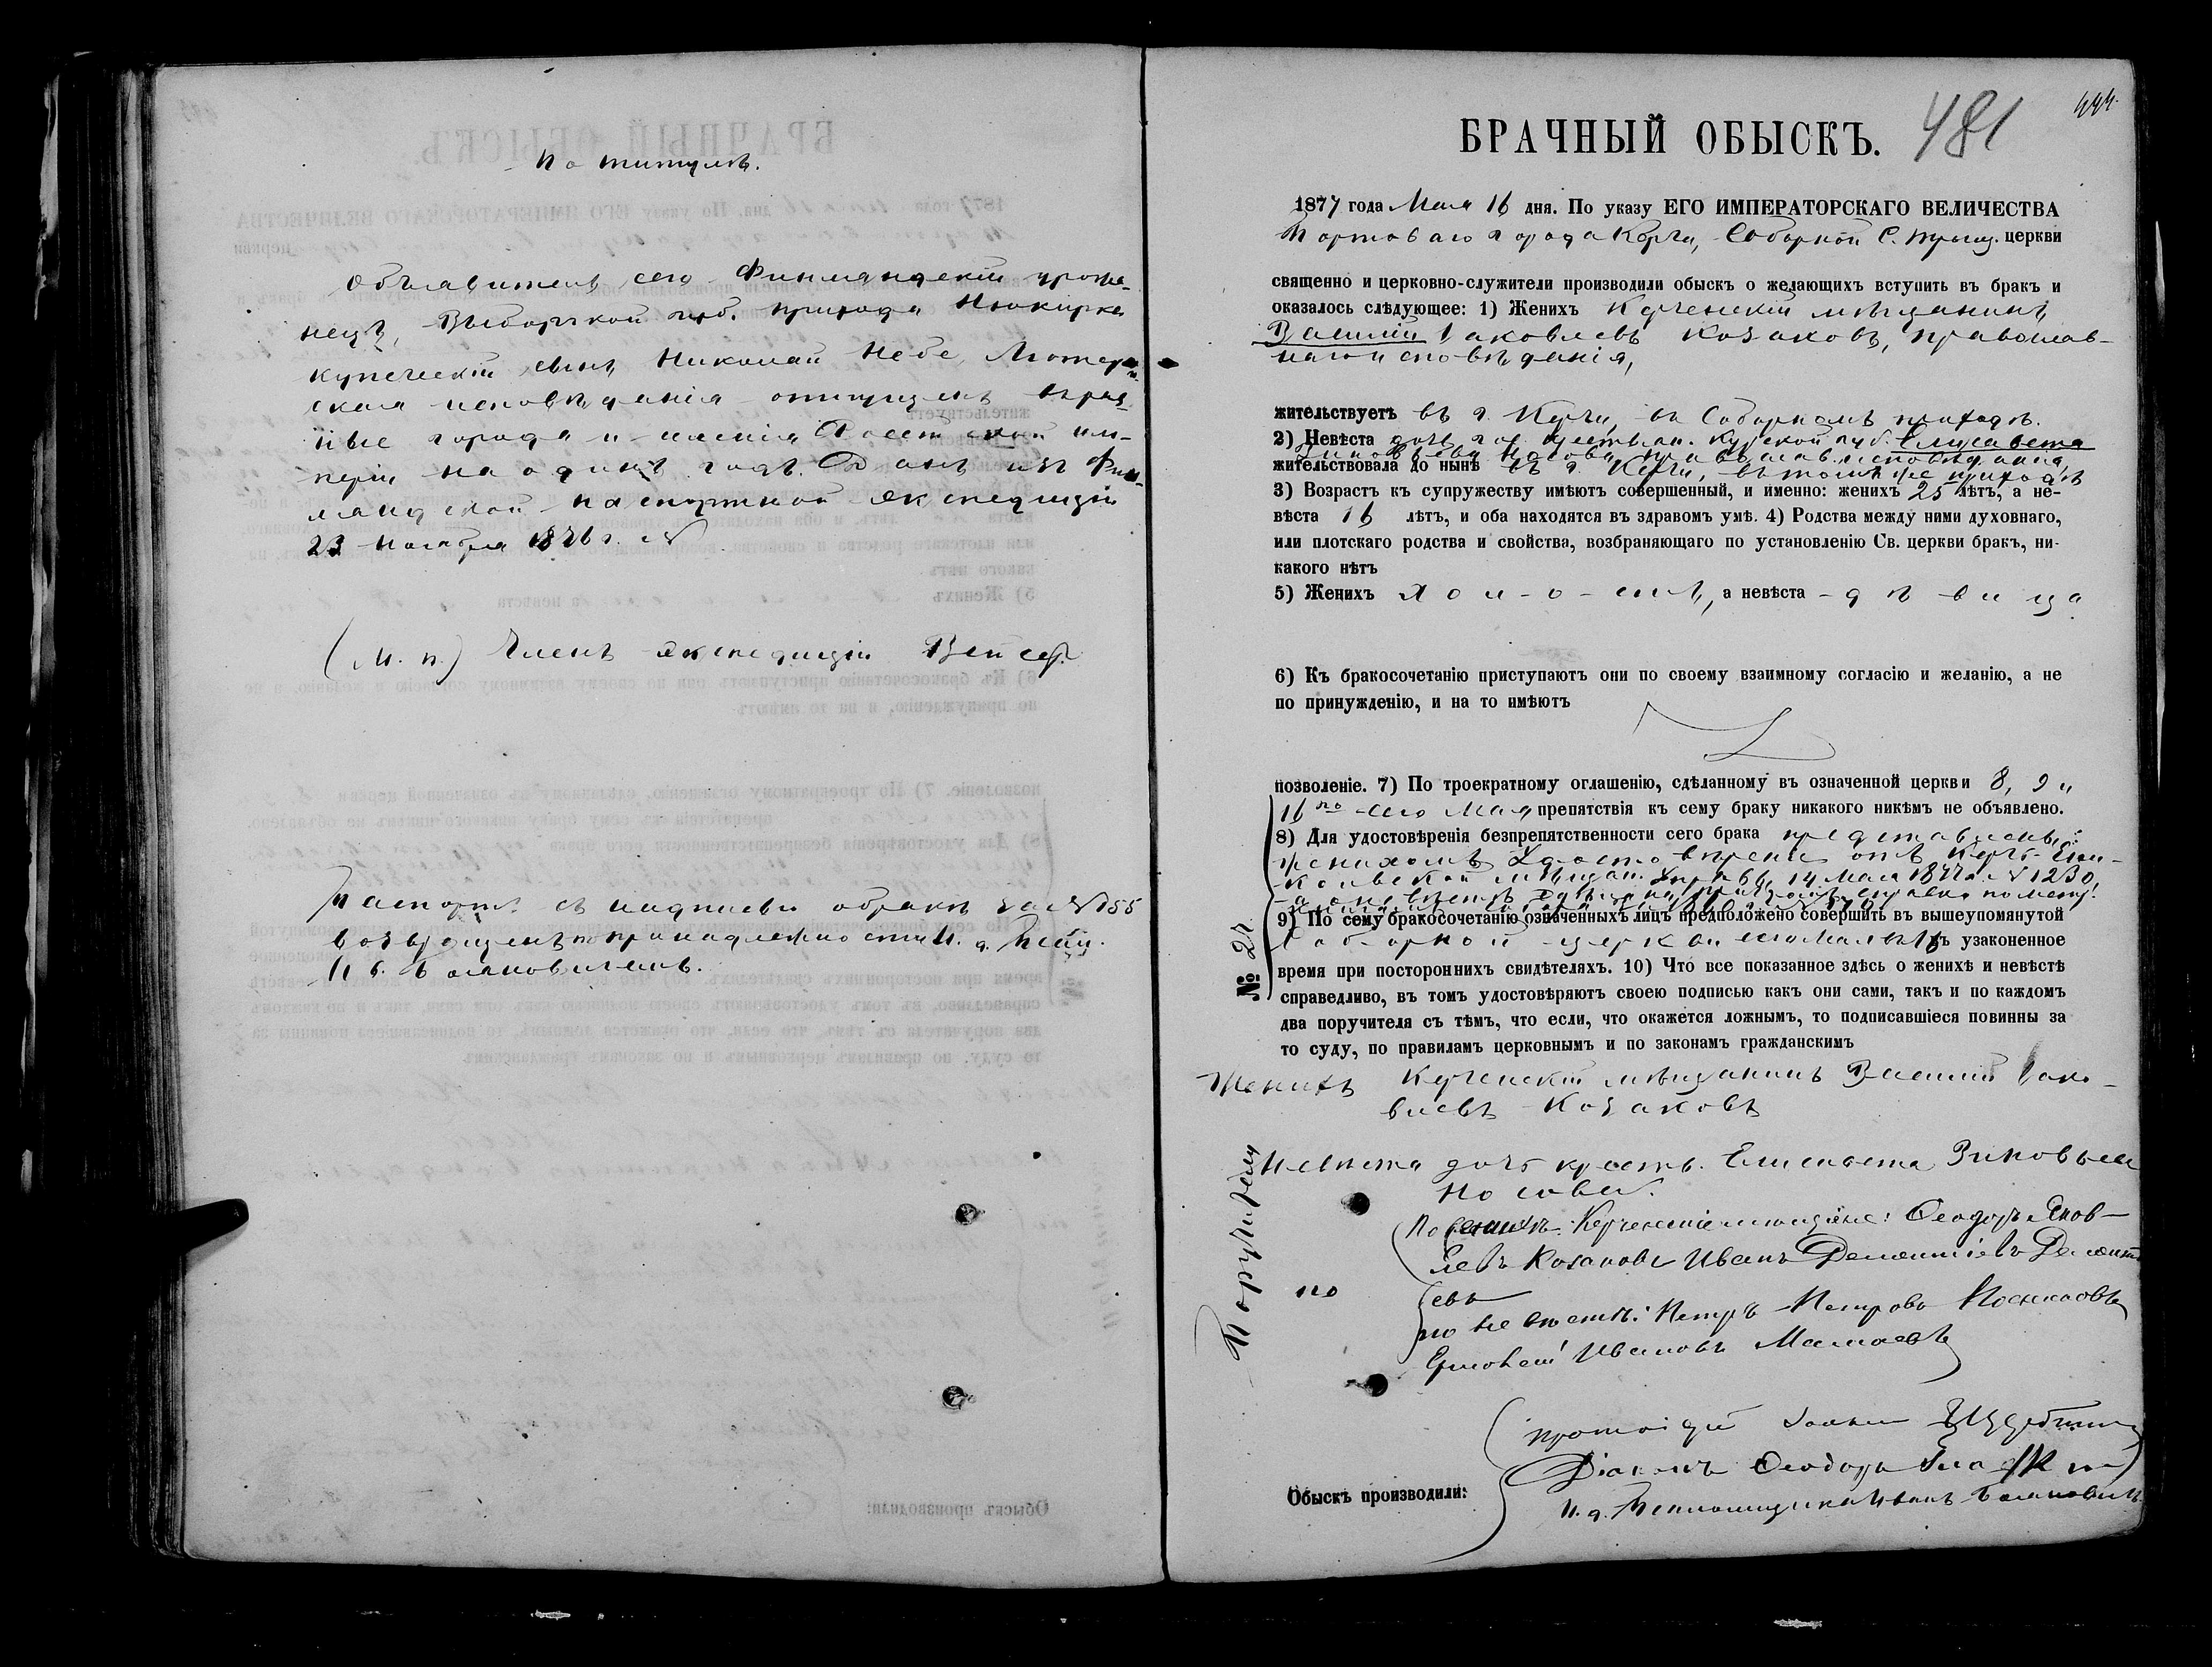 По титулѣ.
Объявитель сего Финляндскій уроже-
нецъ, Выборгской губ. прихода Нюкирка
купеческій сынъ Николай Небе, Лютеран-
скаго исповѣданія отпущенъ въ раз-
ные города и селенія Россійской им-
періи на одинъ годъ. Данъ изъ Фин-
ляндской паспортной экспедиціи
23 Ноября 1876 г. №
(М. п.) Членъ экспедиціи
Паспортъ съ надписью о бракѣ за № 155
возвращенъ по принадлежности И. д.
Ив.
444.
481
БРАЧНЫЙ ОБЫСКЪ.
1877 года Мая 16 дня. По указу ЕГО ИМПЕРАТОРСКАГО ВЕЛИЧЕСТВА
Портоваго города Керчи, Соборной С. Троиц. церкви
священно и церковно-служители производили обыскъ о желающихъ вступить въ бракъ и
оказалось слѣдующее: 1) Женихъ Керченскій мѣщанинъ
Василій Іаковлевъ Козаковъ, православ-
наго исповѣданія,
жительствуетъ въ г. Керчи, въ Соборномъ приходѣ.
2) Невѣста дочь крестьян. Курской губ. Елисавета
Зиновьева Носова, православ. исповѣданія,
жительствовала до нынѣ въ г. Керчи, въ томъ же приходѣ
3) Возрастъ къ супружеству имѣютъ совершенный, и именно: женихъ 25 лѣтъ, а не-
вѣста 16 лѣтъ, и оба находятся въ здравомъ умѣ. 4) Родства между ними духовнаго,
или плотскаго родства и свойства, возбраняющаго по установленію Св. церкви бракъ, ни-
какого нѣтъ
5) Женихъ холостъ, а невѣста дѣвица
6) Къ бракосочетанію приступаютъ они по своему взаимному согласію и желанію, а не
по принужденію, и на то имѣютъ
позволеніе. 7) По троекратному оглашенію, сдѣланному въ означенной церкви 8, 9 и
16 го сего Мая препятствія къ сему браку никакого никѣмъ не объявлено.
8) Для удостовѣренія безпрепятственности сего брака представлены:
женихомъ удостовѣреніе отъ Керчь-Ени-
кольской мѣщан. Управы, 14 Мая 1877 г. № 1230,
а о невѣстѣ
9) По сему бракосочетанію означенныхъ лицъ предположено совершить въ вышеупомянутой
Соборной церкви сего Мая 16 въ узаконенное
время при постороннихъ свидѣтеляхъ. 10) Что все показанное здѣсь о женихѣ и невѣстѣ
справедливо, въ томъ удостовѣряютъ своею подписью какъ они сами, такъ и по каждомъ
два поручителя съ тѣмъ, что если, что окажется ложнымъ, то подписавшіеся повинны за
то суду, по правиламъ церковнымъ и по законамъ гражданскимъ
Женихъ Керченскій мѣщанинъ Василій Іако-
влевъ Козаковъ
Невѣста дочь крестъ. Елисавета Зиновьева
Носова.
Поручители
по
По женихѣ: Керченскіе мѣщане: Ѳеодоръ Яков-
левъ Козаковъ Иванъ Дементіевъ Дементі
евъ
по невѣстѣ: Петръ Петровъ
Ермолай Ивановъ Мамаевъ
Обыскъ производили:
Протоіерей Іоаннъ
Діаконъ Ѳеодоръ
И. д. Псаломщика Иванъ